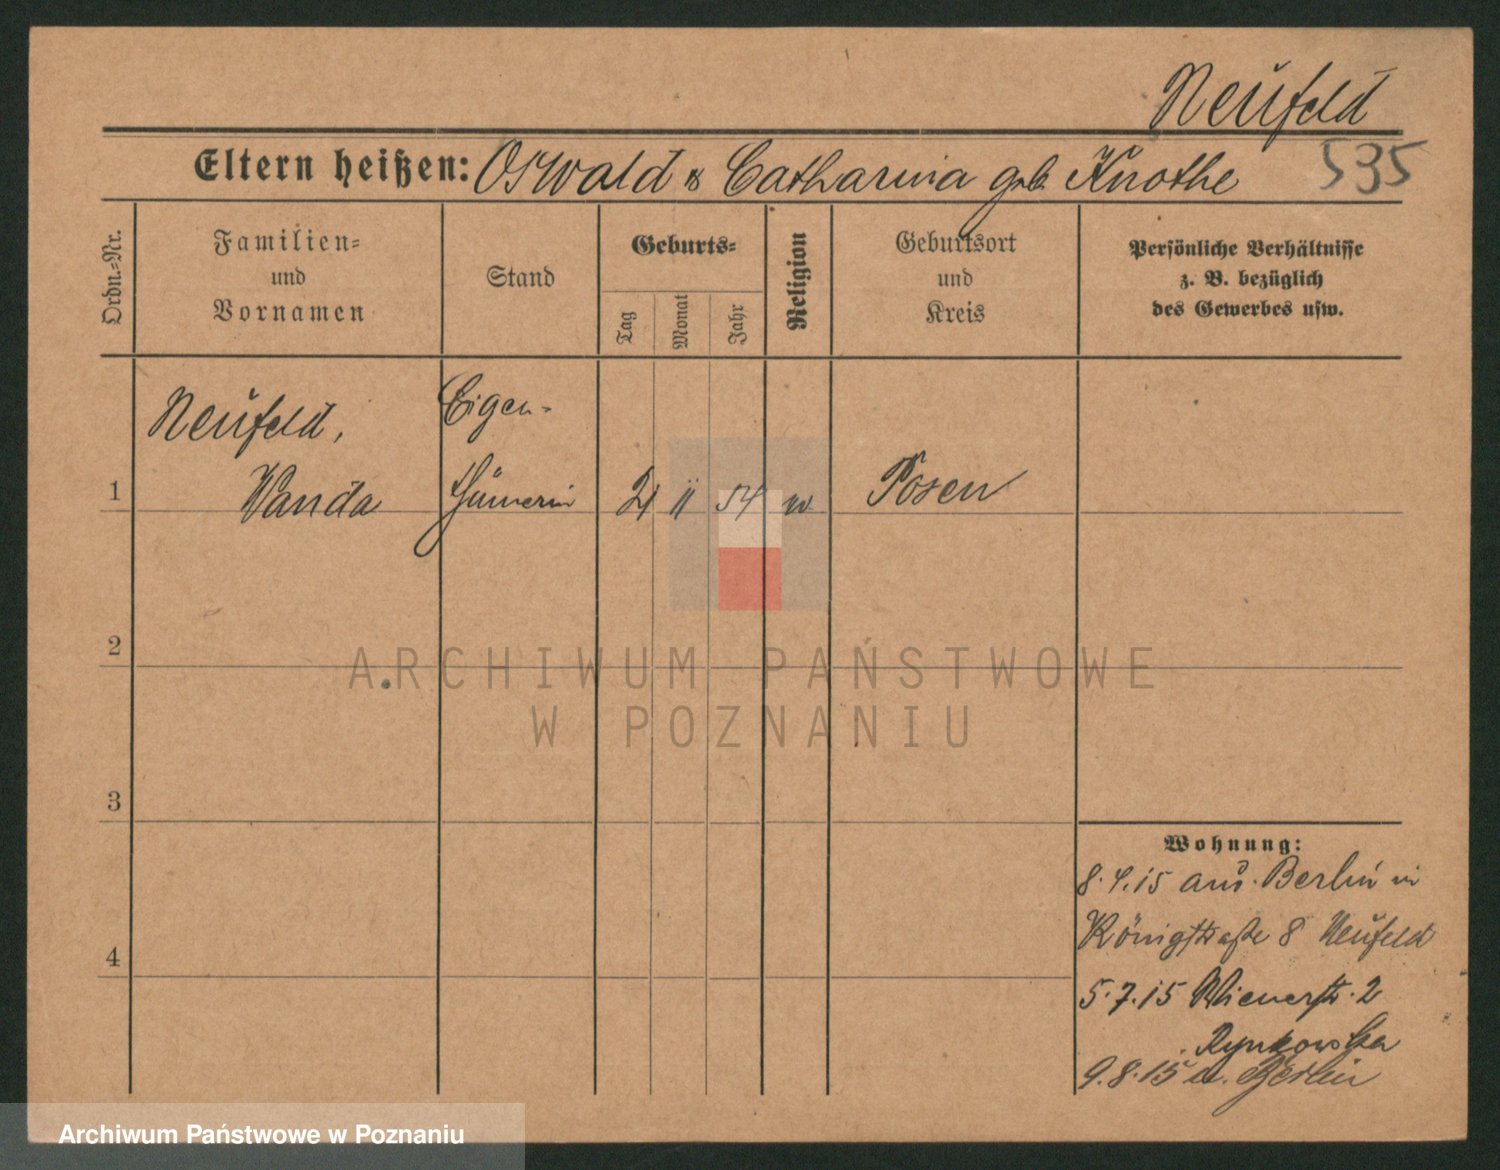 Neufeld
Eltern heißen: Oswald & Catharina geb. Knothe 535
Ordn.-Nr.
Familien-
und
Vornamen
Stand
Geburts-
Tag
Monat
Jahr
Religion
Geburtsort
und
Kreis
Persönliche Verhältnisse
z. B. bezüglich
des Gewerbes usw.
Neufeld, Eigen-
1 Wanda thümerin 21 11 54 Posen
2
3
4
Wohnung:
8.4.15 aus Berlin in
Königstraße 8 Neufeld
5.7.15 Wienerstr. 2
Rynkowska
9.8.15 n. Berlin
ARCHIWUM PAŃSTWOWE
W POZNANIU
Archiwum Państwowe w Poznaniu